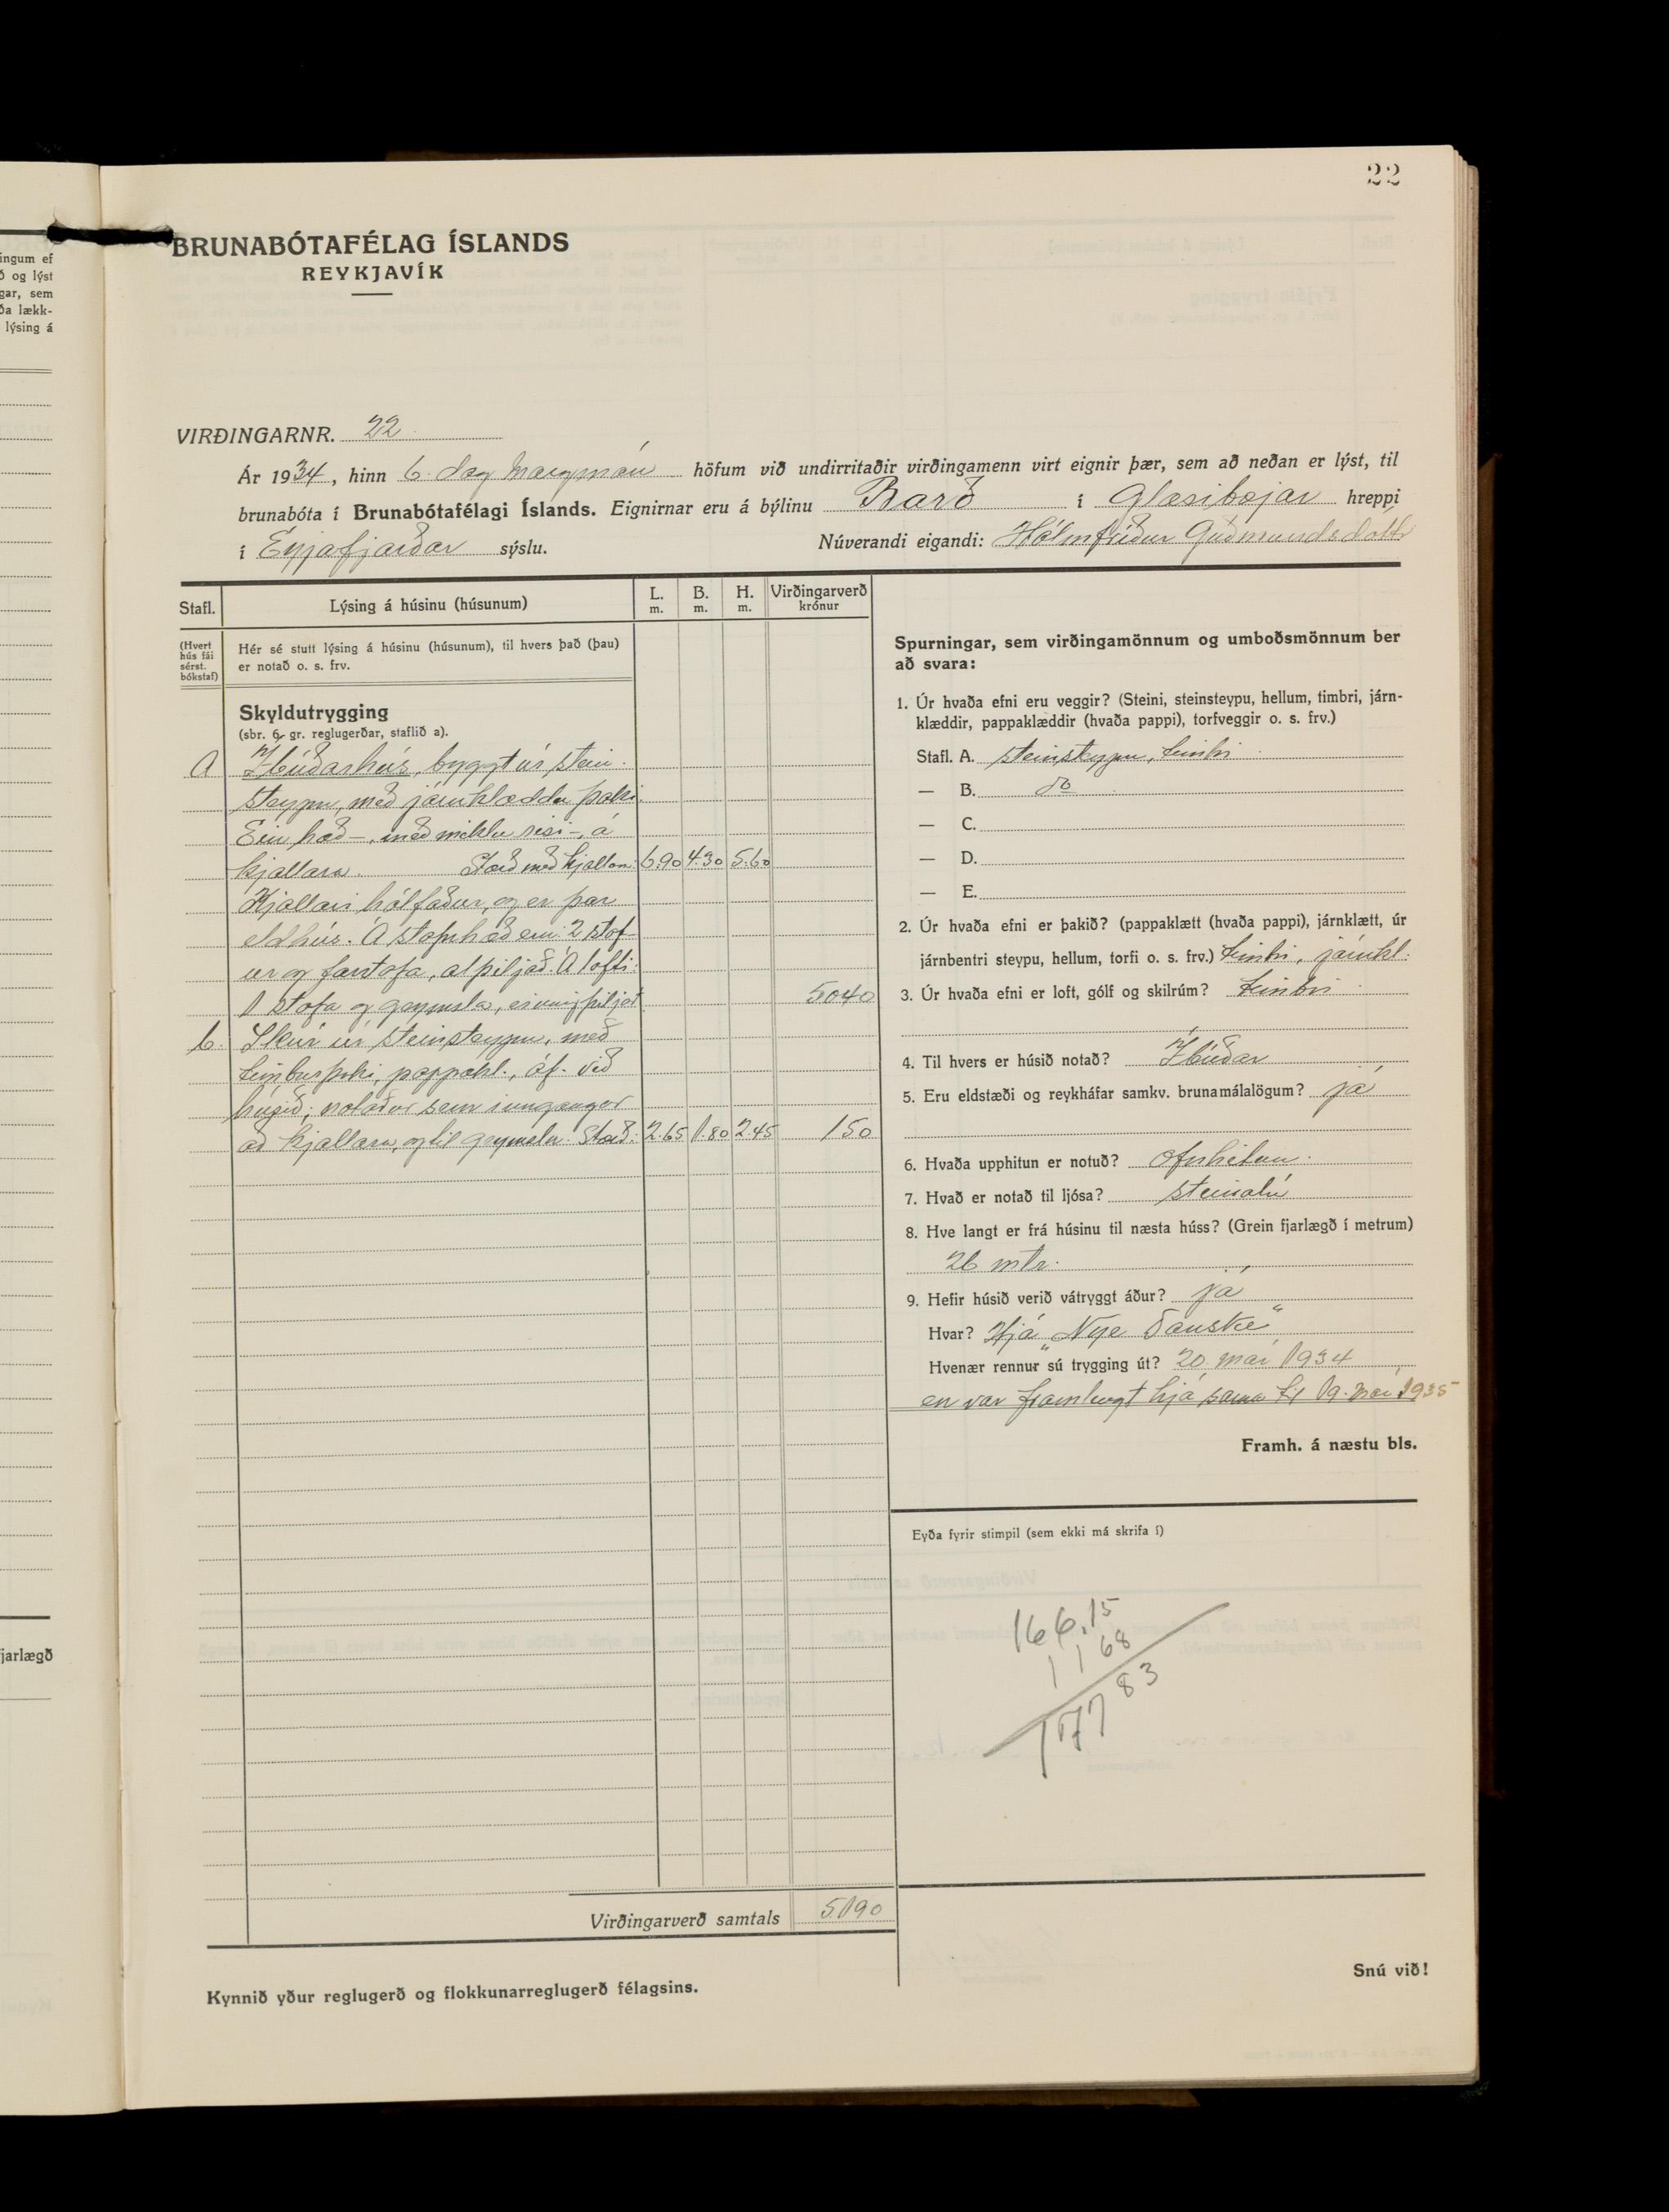 22
BRUNABÓTAFÉLAG ÍSLANDS
REYKJAVÍK
ingum ef
ð og lýst
gar, sem
ða lækk-
lýsing á
jarlægð
VIRÐINGARNR. 22
Ár 1934, hinn 6. dag höfum við undirritaðir virðingamenn virt eignir þær, sem að neðan er lýst, til
brunabóta í Brunabótafélagi Íslands. Eignirnar eru á býlinu Barð í Glæsibæjar hreppi
í Eyjafjarðar sýslu. Núverandi eigandi: Hólmfríður Guðmundsdottir
Stafl. Lýsing á húsinu (húsunum) L. m. B. m. H. m. Virðingarverð krónur
(Hvert hús fái sérst. bókstaf)
Hér sé stutt lýsing á húsinu (húsunum), til hvers það (þau)
er notað o. s. frv.
Skyldutrygging
(sbr. 6. gr. reglugerðar, staflið a).
A Íbúðarhús, byggt úr stein-
steypu, með járnklæddu þaki.
Ein hæð -, með miklu risi -, á
kjallara. Stærð með kjallara: 6.90 4.30 5.60
Kjallari hálfaður, og er þar
eldhús. Á stofuhæð eru 2 stof-
ur og forstofa, alþiljað. Á lofti:
1 stofa og geymsla, einnig þiljað 5040
b. Skúr úr steinsteypu, með
timburþaki, pappakl., áf. við
húsið; notaður sem inngangur
að kjallara, og til geymslu. Stærð: 2.65 1.80 2.45 150
Virðingarverð samtals 5190
Kynnið yður reglugerð og flokkunarreglugerð félagsins.
Spurningar, sem virðingamönnum og umboðsmönnum ber
að svara:
1. Úr hvaða efni eru veggir? (Steini, steinsteypu, hellum, timbri, járn-
klæddir, pappaklæddir (hvaða pappi), torfveggir o. s. frv.)
Stafl. A. steinsteypu, timbri
— B. do
— C.
— D.
— E.
2. Úr hvaða efni er þakið? (pappaklætt (hvaða pappi), járnklætt, úr
járnbentri steypu, hellum, torfi o. s. frv.) timbri, járnkl.
3. Úr hvaða efni er loft, gólf og skilrúm? timbri
4. Til hvers er húsið notað? Íbúðar
5. Eru eldstæði og reykháfar samkv. brunamálalögum? já
6. Hvaða upphitun er notuð? ofnhitun.
7. Hvað er notað til ljósa? steinolía
8. Hve langt er frá húsinu til næsta húss? (Grein fjarlægð í metrum)
26 mtr.
9. Hefir húsið verið vátryggt áður? já
Hvar? Hjá „Nye Danske“
Hvenær rennur sú trygging út? 20. maí 1934
en var framlengt hjá sama til 19. maí 1935
Framh. á næstu bls.
Eyða fyrir stimpil (sem ekki má skrifa í)
166.15
11 68
177 83
Snú við!